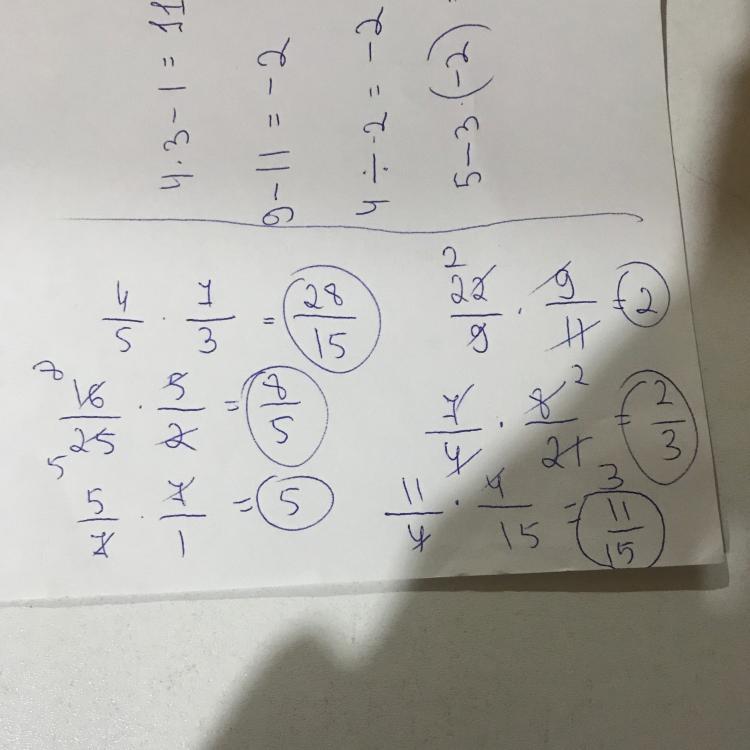 4·3-1=11
9-11=-2
4÷-2=-2
5-3·(-2)=
4/5 · 7/3 = 28/15
8 16/25 5 · 5/2 = 8/5
5/7 · 7/1 = 5
2 22/9 · 9/11 = 2
7/4 · 8/21 2 3 = 2/3
11/4 · 4/15 = 11/15